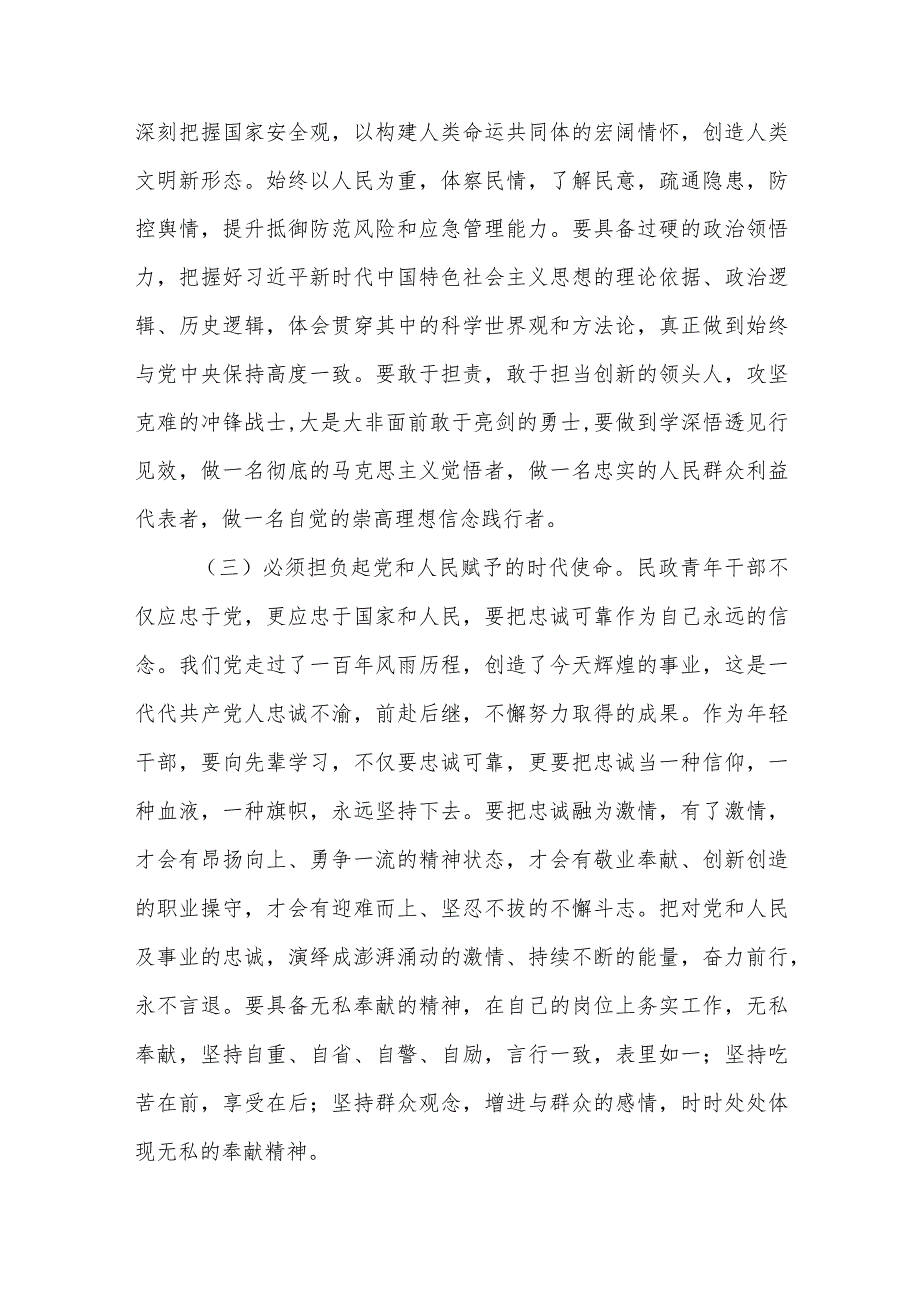 深刻把握国家安全观，以构建人类命运共同体的宏阔情怀，创造人类
文明新形态。始终以人民为重，体察民情，了解民意，疏通隐患，防
控舆情，提升抵御防范风险和应急管理能力。要具备过硬的政治领悟
力，把握好习近平新时代中国特色社会主义思想的理论依据、政治逻
辑、历史逻辑，体会贯穿其中的科学世界观和方法论，真正做到始终
与党中央保持高度一致。要敢于担责，敢于担当创新的领头人，攻坚
克难的冲锋战士,大是大非面前敢于亮剑的勇士,要做到学深悟透见行
见效，做一名彻底的马克思主义觉悟者，做一名忠实的人民群众利益
代表者，做一名自觉的崇高理想信念践行者。
（三）必须担负起党和人民赋予的时代使命。民政青年干部不
仅应忠于党，更应忠于国家和人民，要把忠诚可靠作为自己永远的信
念。我们党走过了一百年风雨历程，创造了今天辉煌的事业，这是一
代代共产党人忠诚不渝，前赴后继，不懈努力取得的成果。作为年轻
干部，要向先辈学习，不仅要忠诚可靠，更要把忠诚当一种信仰，一
种血液，一种旗帜，永远坚持下去。要把忠诚融为激情，有了激情，
才会有昂扬向上、勇争一流的精神状态，才会有敬业奉献、创新创造
的职业操守，才会有迎难而上、坚忍不拔的不懈斗志。把对党和人民
及事业的忠诚，演绎成澎湃涌动的激情、持续不断的能量，奋力前行，
永不言退。要具备无私奉献的精神，在自己的岗位上务实工作，无私
奉献，坚持自重、自省、自警、自励，言行一致，表里如一；坚持吃
苦在前，享受在后；坚持群众观念，增进与群众的感情，时时处处体
现无私的奉献精神。